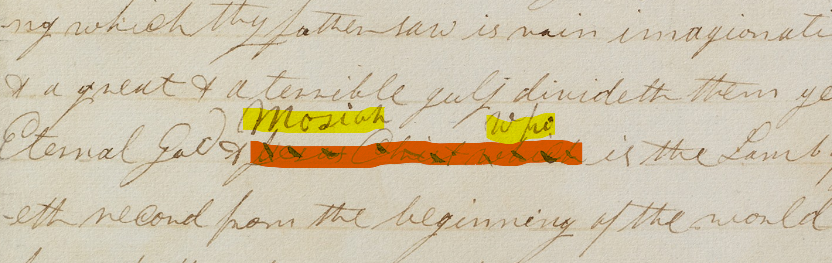 ng which thy father saw is vain imagionati
& a great & a terrible gulf divideth them ye
Mosiah Who
Eternal God & Jesus Christ which is the Lamb
-eth record from the beginning of the world